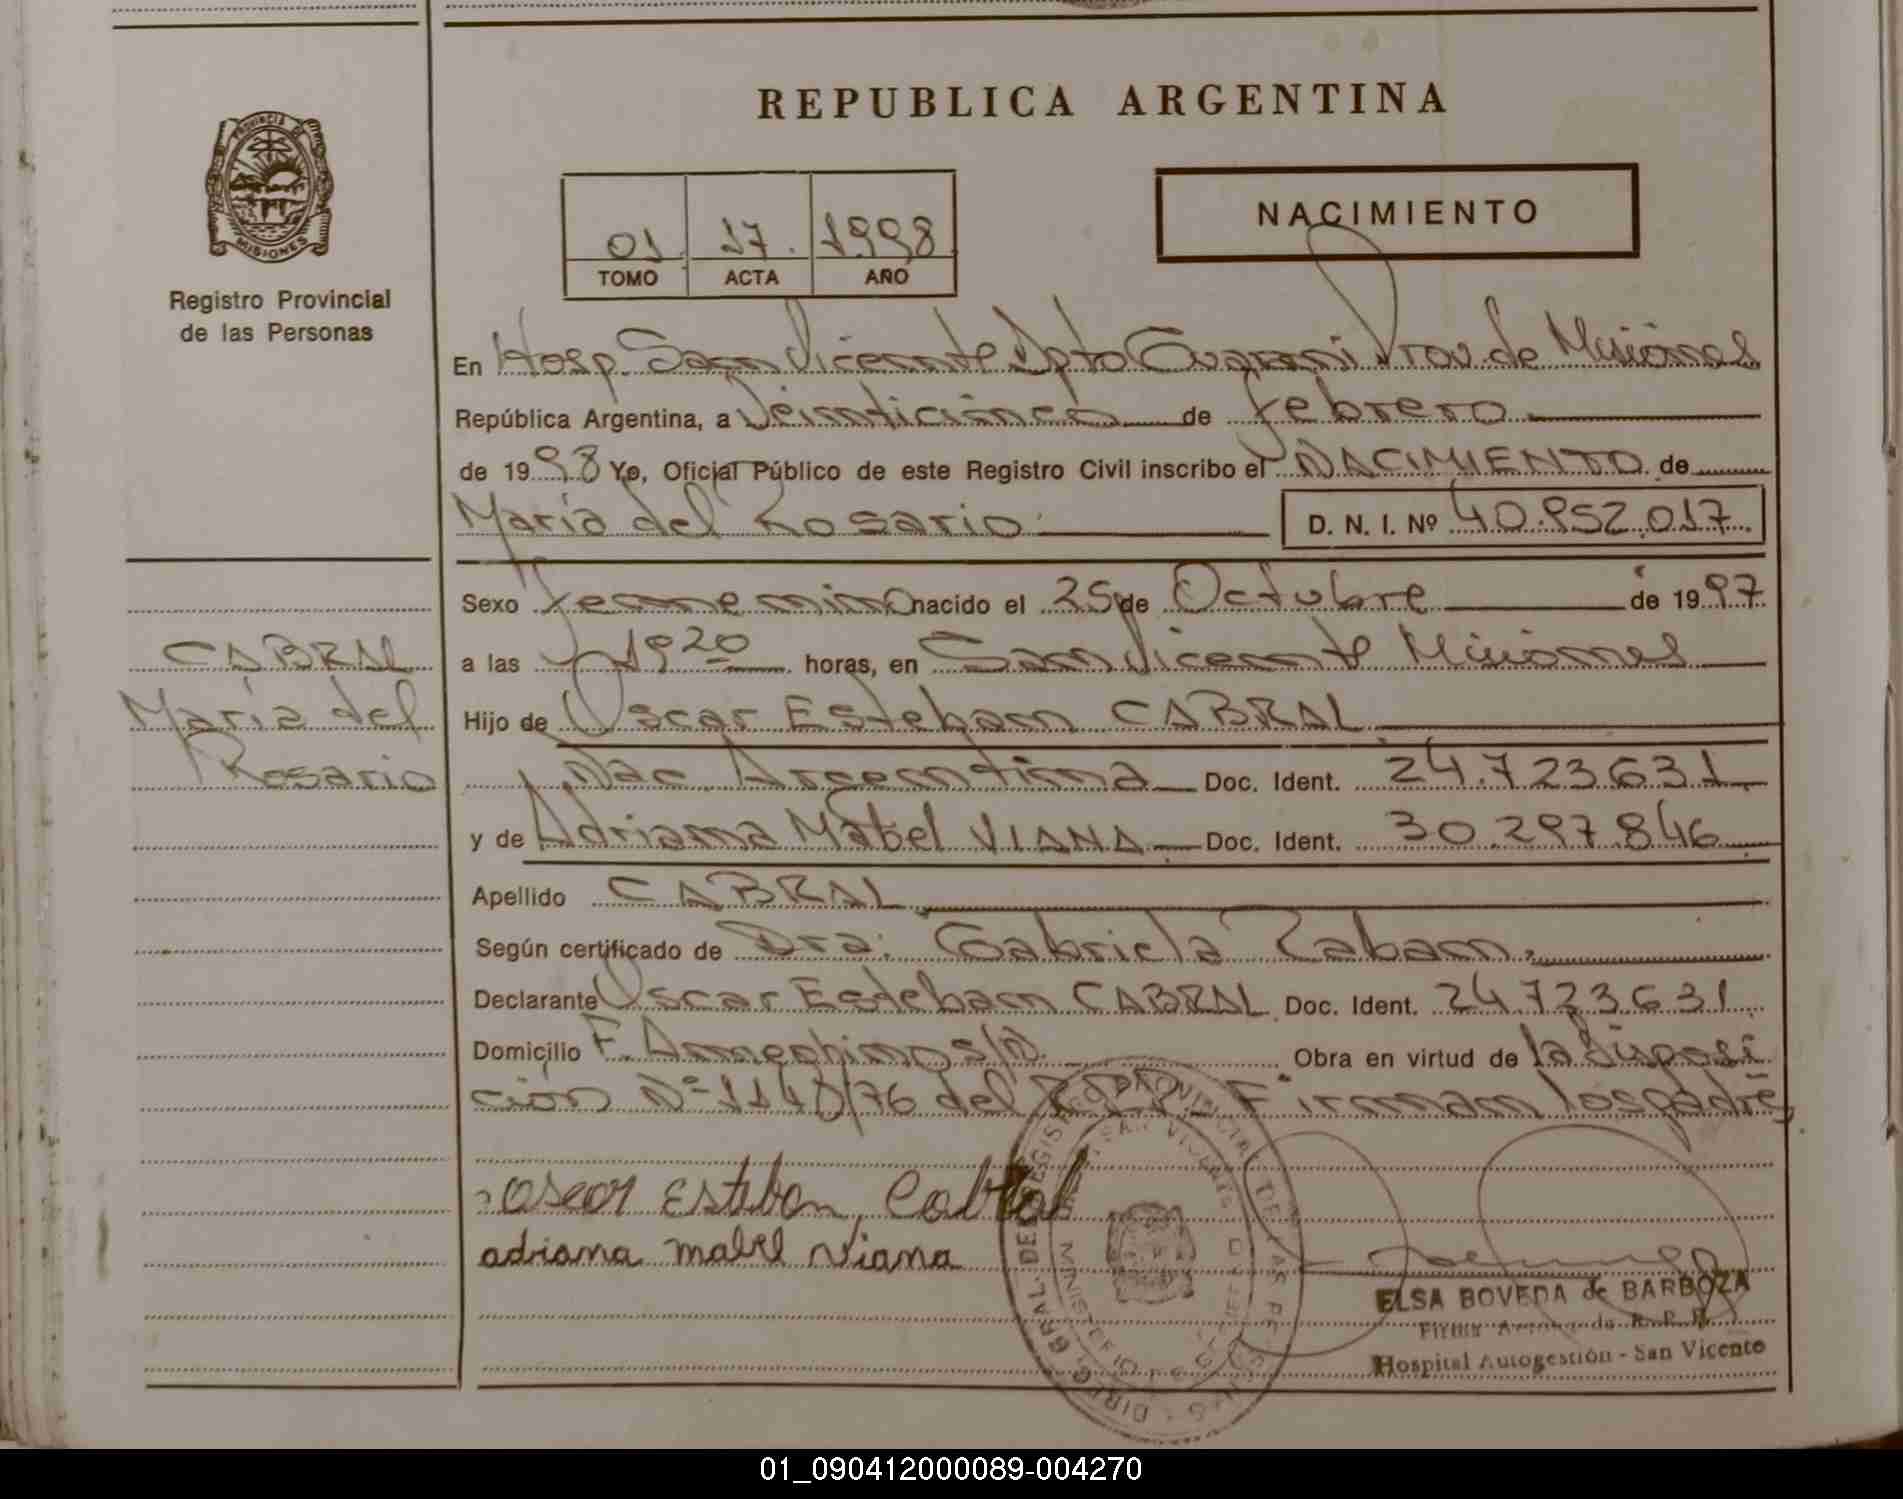 REPUBLICA ARGENTINA
PROVINCIA DE
MISIONES
Registro Provincial
de las Personas
01 17. 1998
TOMO ACTA AÑO
NACIMIENTO
En Hosp. San Vicente Dpto Guarani Prov. de Misiones
República Argentina, a Veinticinco de febrero
de 1998 Yo, Oficial Público de este Registro Civil inscribo el NACIMIENTO de
María del Rosario D. N. I. Nº 40.952.017.
Sexo femenino nacido el 25 de Octubre de 1997
a las 19 20 horas, en San Vicente Misiones
Hijo de Oscar Esteban CABRAL
Nac. Argentina Doc. Ident. 24.723.631
y de Adriana Mabel VIANA Doc. Ident. 30.297.846
Apellido CABRAL
Según certificado de Dra. Gabriela Zaban
Declarante Oscar Esteban CABRAL Doc. Ident. 24.723.631
Domicilio F. Anneghino s/n. Obra en virtud de la Disposi
ción Nº 1140/76 del R.P.P. Firman los padres
CABRAL
María del
Rosario
oscar Esteban Cabral
adriana mabel viana
ELSA BOVEDA de BARBOZA
R. P. P.
Hospital Autogestión - San Vicente
01_090412000089-004270